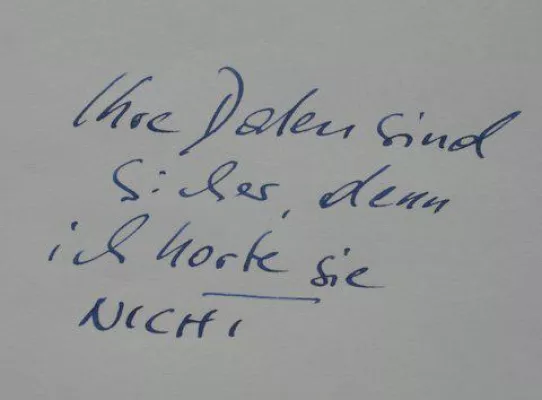 Ihre Daten sind
sicher, denn
ich horte sie
NICHT